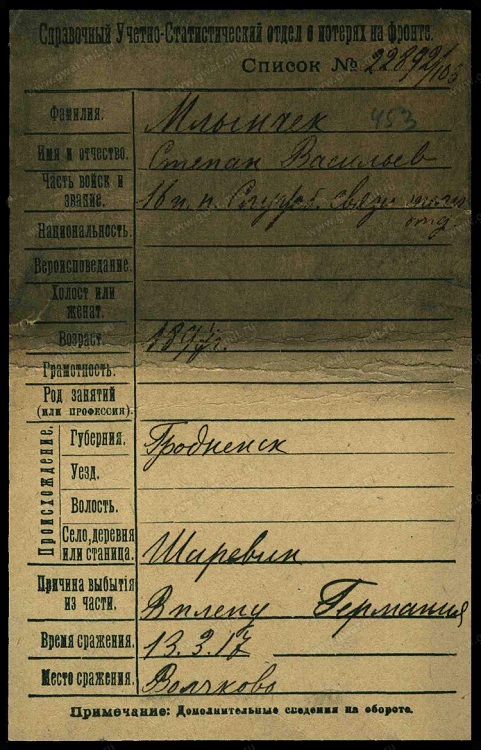 Справочный Учетно-Статистический отдел о потерях на фронте.
Список № 22892/105
Фамилия. Млынчек 453
Имя и отчество. Степан Васильев
Часть войск и звание. 16 п. п. Служб. связи
отд
Национальность.
Вероисповедание.
Холост или женат.
Возраст. г.
Грамотность.
Род занятий (или профессия).
Происхождение.
Губерния. Гродненск
Уезд.
Волость.
Село, деревня или станица. Шаревин
Причина выбытія из части. В плену Германия
Время сражения. 13.3.17
Место сражения. Волчково
Примечание: Дополнительные сведения на обороте.